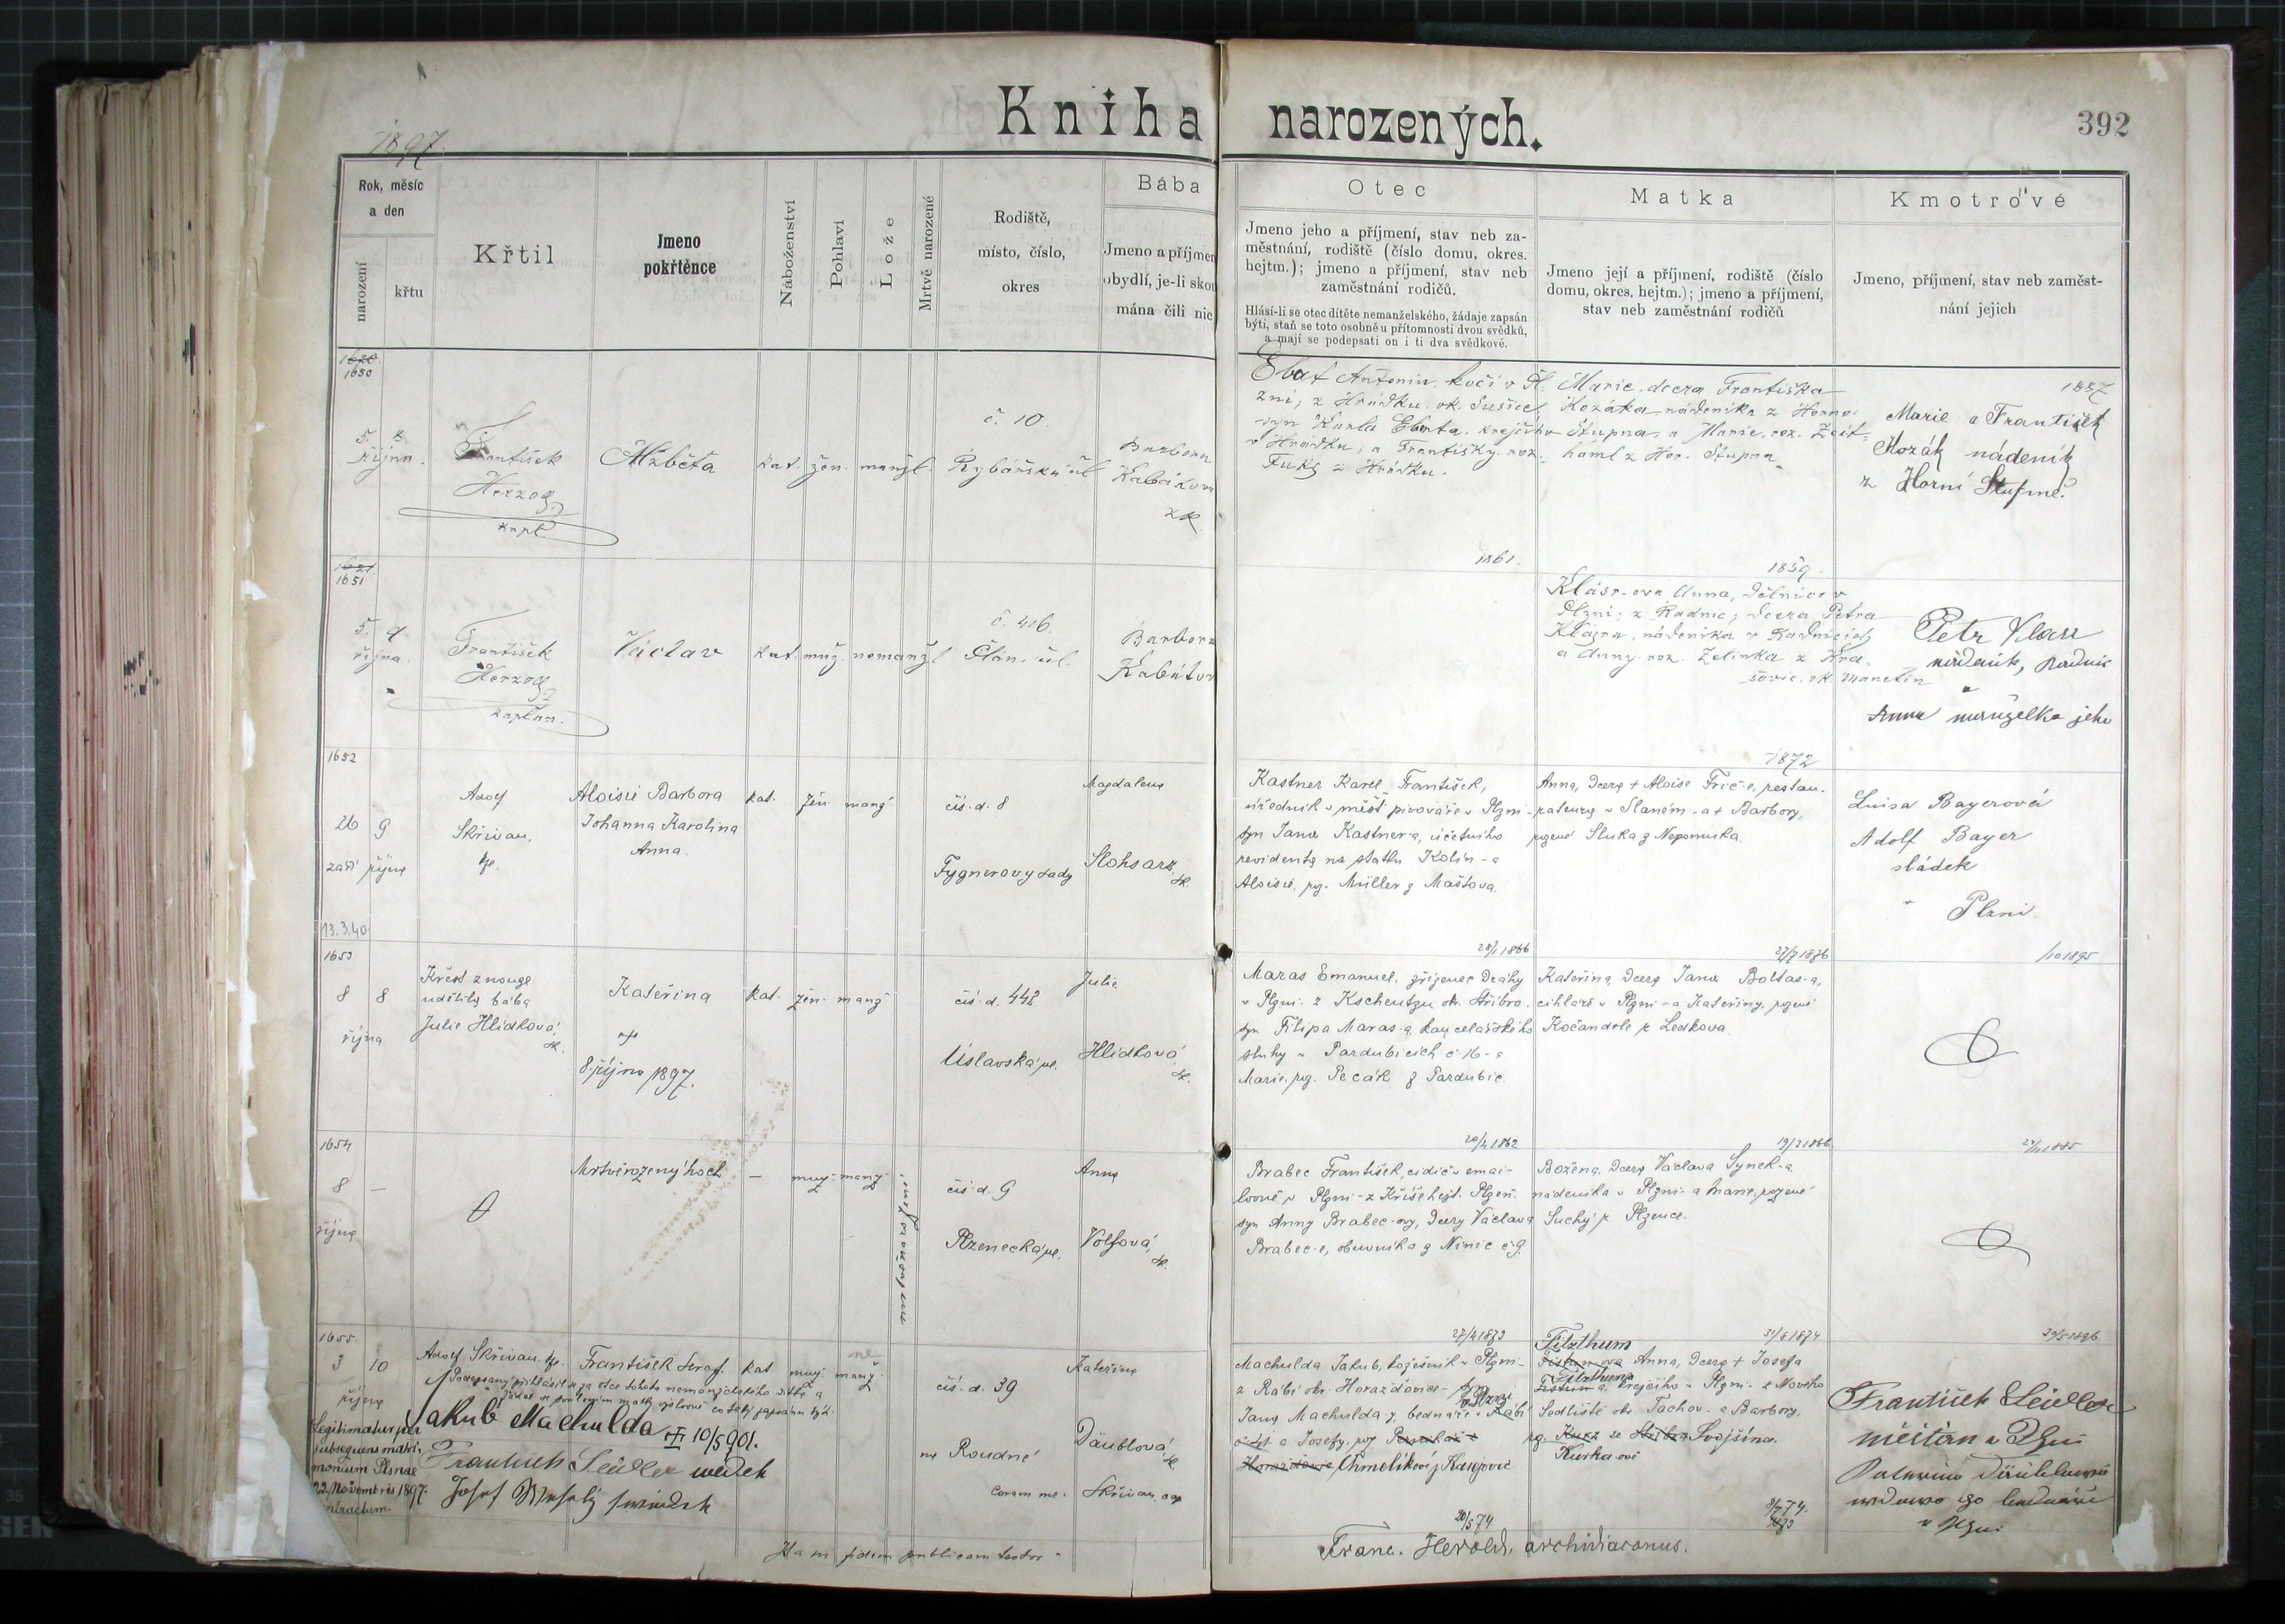 Kniha narozených.
392
1897.
Rok, měsíc
a den
narození
křtu
Křtil
Jmeno
pokřtěnce
Náboženství
Pohlaví
Lože
Mrtvě narozené
Rodiště,
místo, číslo,
okres
Bába
Jmeno a příjmen
obydlí, je-li skou
mána čili nic
Otec
Jmeno jeho a příjmení, stav neb za-
městnání, rodiště (číslo domu, okres.
hejtm.); jmeno a příjmení, stav neb
zaměstnání rodičů.
Hlásí-li se otec dítěte nemanželského, žádaje zapsán
býti, staň se toto osobně u přítomnosti dvou svědků,
a mají se podepsati on i ti dva svědkové.
Matka
Jmeno její a příjmení, rodiště (číslo
domu, okres. hejtm.); jmeno a příjmení,
stav neb zaměstnání rodičů
Kmotrové
Jmeno, příjmení, stav neb zaměst-
nání jejich
1650
5. 8.
října.
František
Herzog
kapl.
Alžběta
kat. žen. manžl.
č. 10.
Rybářská ul
Barbora
Kabátov
Ebat Antonín, kočí v Pl-
zni, z Hrádku. ok. Sušice,
syn Karla Ebata, krejčího
v Hrádku, a Františky roz.
Fuks z Hrádku.
1861.
Marie, dcera Františka
Kozáka nádeníka z Horno
Stupna, a Marie, roz. Zeit-
haml z Hor. Stupna
1859.
1887
Marie a František
Kozák nádeník
z Horní Stupně.
1651
5. 9.
října.
František
Herzog
kaplan.
Václav
kat. muž. nemanžl
č. 416.
Plán. ul.
Barbora
Kabátov
Klásr-ova Anna, dělnice v
Plzni; z Radnic, dcera Petra
Klásra, nádeníka v Radnicích
a Anny roz. Zelinka z Kra-
šovic. ok. Manetín
1872
Petr Klasr
nádeník, Radnic
a
Anna manželka jeho
1652
26 9
září října
13.3.40
Adolf
Skřivan,
Aloisie Barbora
Johanna Karolina
Anna.
kat. žen. manž
čís. d. 8
Fygnerovy sady
Magdalena
Kastner Karel František,
úředník v měšť. pivováře v Plzni-
syn Jana Kastner-a, účetního
revidenta na statku Kolín-a
Aloisie, roz. Müller z Maštova.
28/1 1866
Anna, dcera + Aloise Frič-e, restau-
rateura v Slaném-a + Barbory,
rozené Sluka z Nepomuka.
27/7 1876
Luisa Bayerová
Adolf Bayer
sládek
v Plzni.
/10 1895
1653
8 8
října
Křest z nouze
udělila bába
Julie Hlídková,
Kateřina
8. října 1897.
kat. žen. manž
čís. d. 442
Úslavská ul.
Julie
Hlídková,
Maras Emanuel, zřízenec dráhy
v Plzni-z Kscheutzu ok. Stříbro.
syn Filipa Maras-a, kancelářského
sluhy v Pardubicích č 16-a
Marie, roz. Pecák z Pardubic.
20/4 1862
Kateřina, dcera Jana Boltas-a,
cihláře v Plzni-a Kateřiny, rozené
Kočandrle z Ledkova
19/3 1866
24/11 1885
1654
8 —
října
Mrtvěrozený hoch
— muž. manž
mrtvorozený
čís. d. 9
Plzenecká ul.
Anna
Volfová,
Brabec František, cídič v emai-
lovně v Plzni-z Kříše hejt. Plzeň.
syn Anny Brabec-ovy, dcery Václava
Brabec-e, obuvníka z Ninic č. 9.
27/4 1873
Božena, dcera Václava Synek-a
nádeníka v Plzni-a Marie, rozené
Suchý z Plzence.
31/8 1874
29/5 1896
1655.
3 10
října
Adolf Skřivan.
František Seraf.
kat muž. ne manž.
Podepsaný přihlásil se za otce tohoto nemanželského dítka a
žádal se svolením matky výslovně co takový zapsán býti.
Jakub Machulda 10/5 901.
František Seidler svědek
Josef Veselý svědek
Legitimatus per
subsequens matri-
monium Plsnae
22. Novembris 1897
contractum.
čís. d. 39
na Roudné
Kateřina
Däublová,
coram me: Skřivan
Machulda Jakub, kožešník v Plzni-
z Rábí ok. Horažďovice-syn
Jana Machulda-y, bednáře v Plzni
a Josefy, roz
Horažďovic Chmelíkové z Kanjovic
20/5 74
Fitzthum
Anna, dcera + Josefa
Fitzthuma
krejčího v Plzni-z Nového
Sedliště ok. Tachov. a Barbory,
rz. Kurz ze Svojšína.
Kurka-ové
8/7 74.
František Seidler
měšťan v Plzni
Kateřina Däublová
vdova po bednáři
v Plzni
In fidem publicam testor-
Franc. Herold, archidiaconus.